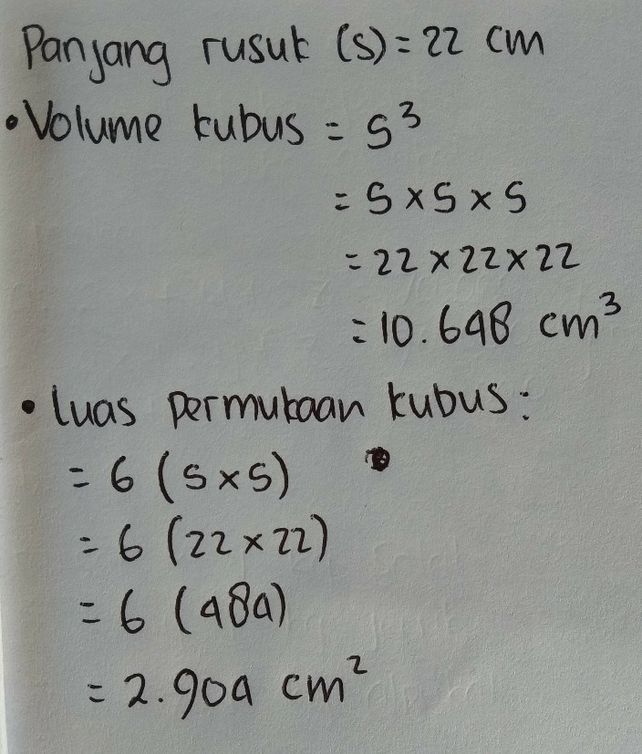 Panjang rusuk (s) = 22 cm
• Volume kubus = s³
= s × s × s
= 22 × 22 × 22
= 10.648 cm³
• Luas permukaan kubus :
= 6 (s × s)
= 6 (22 × 22)
= 6 (484)
= 2.904 cm²